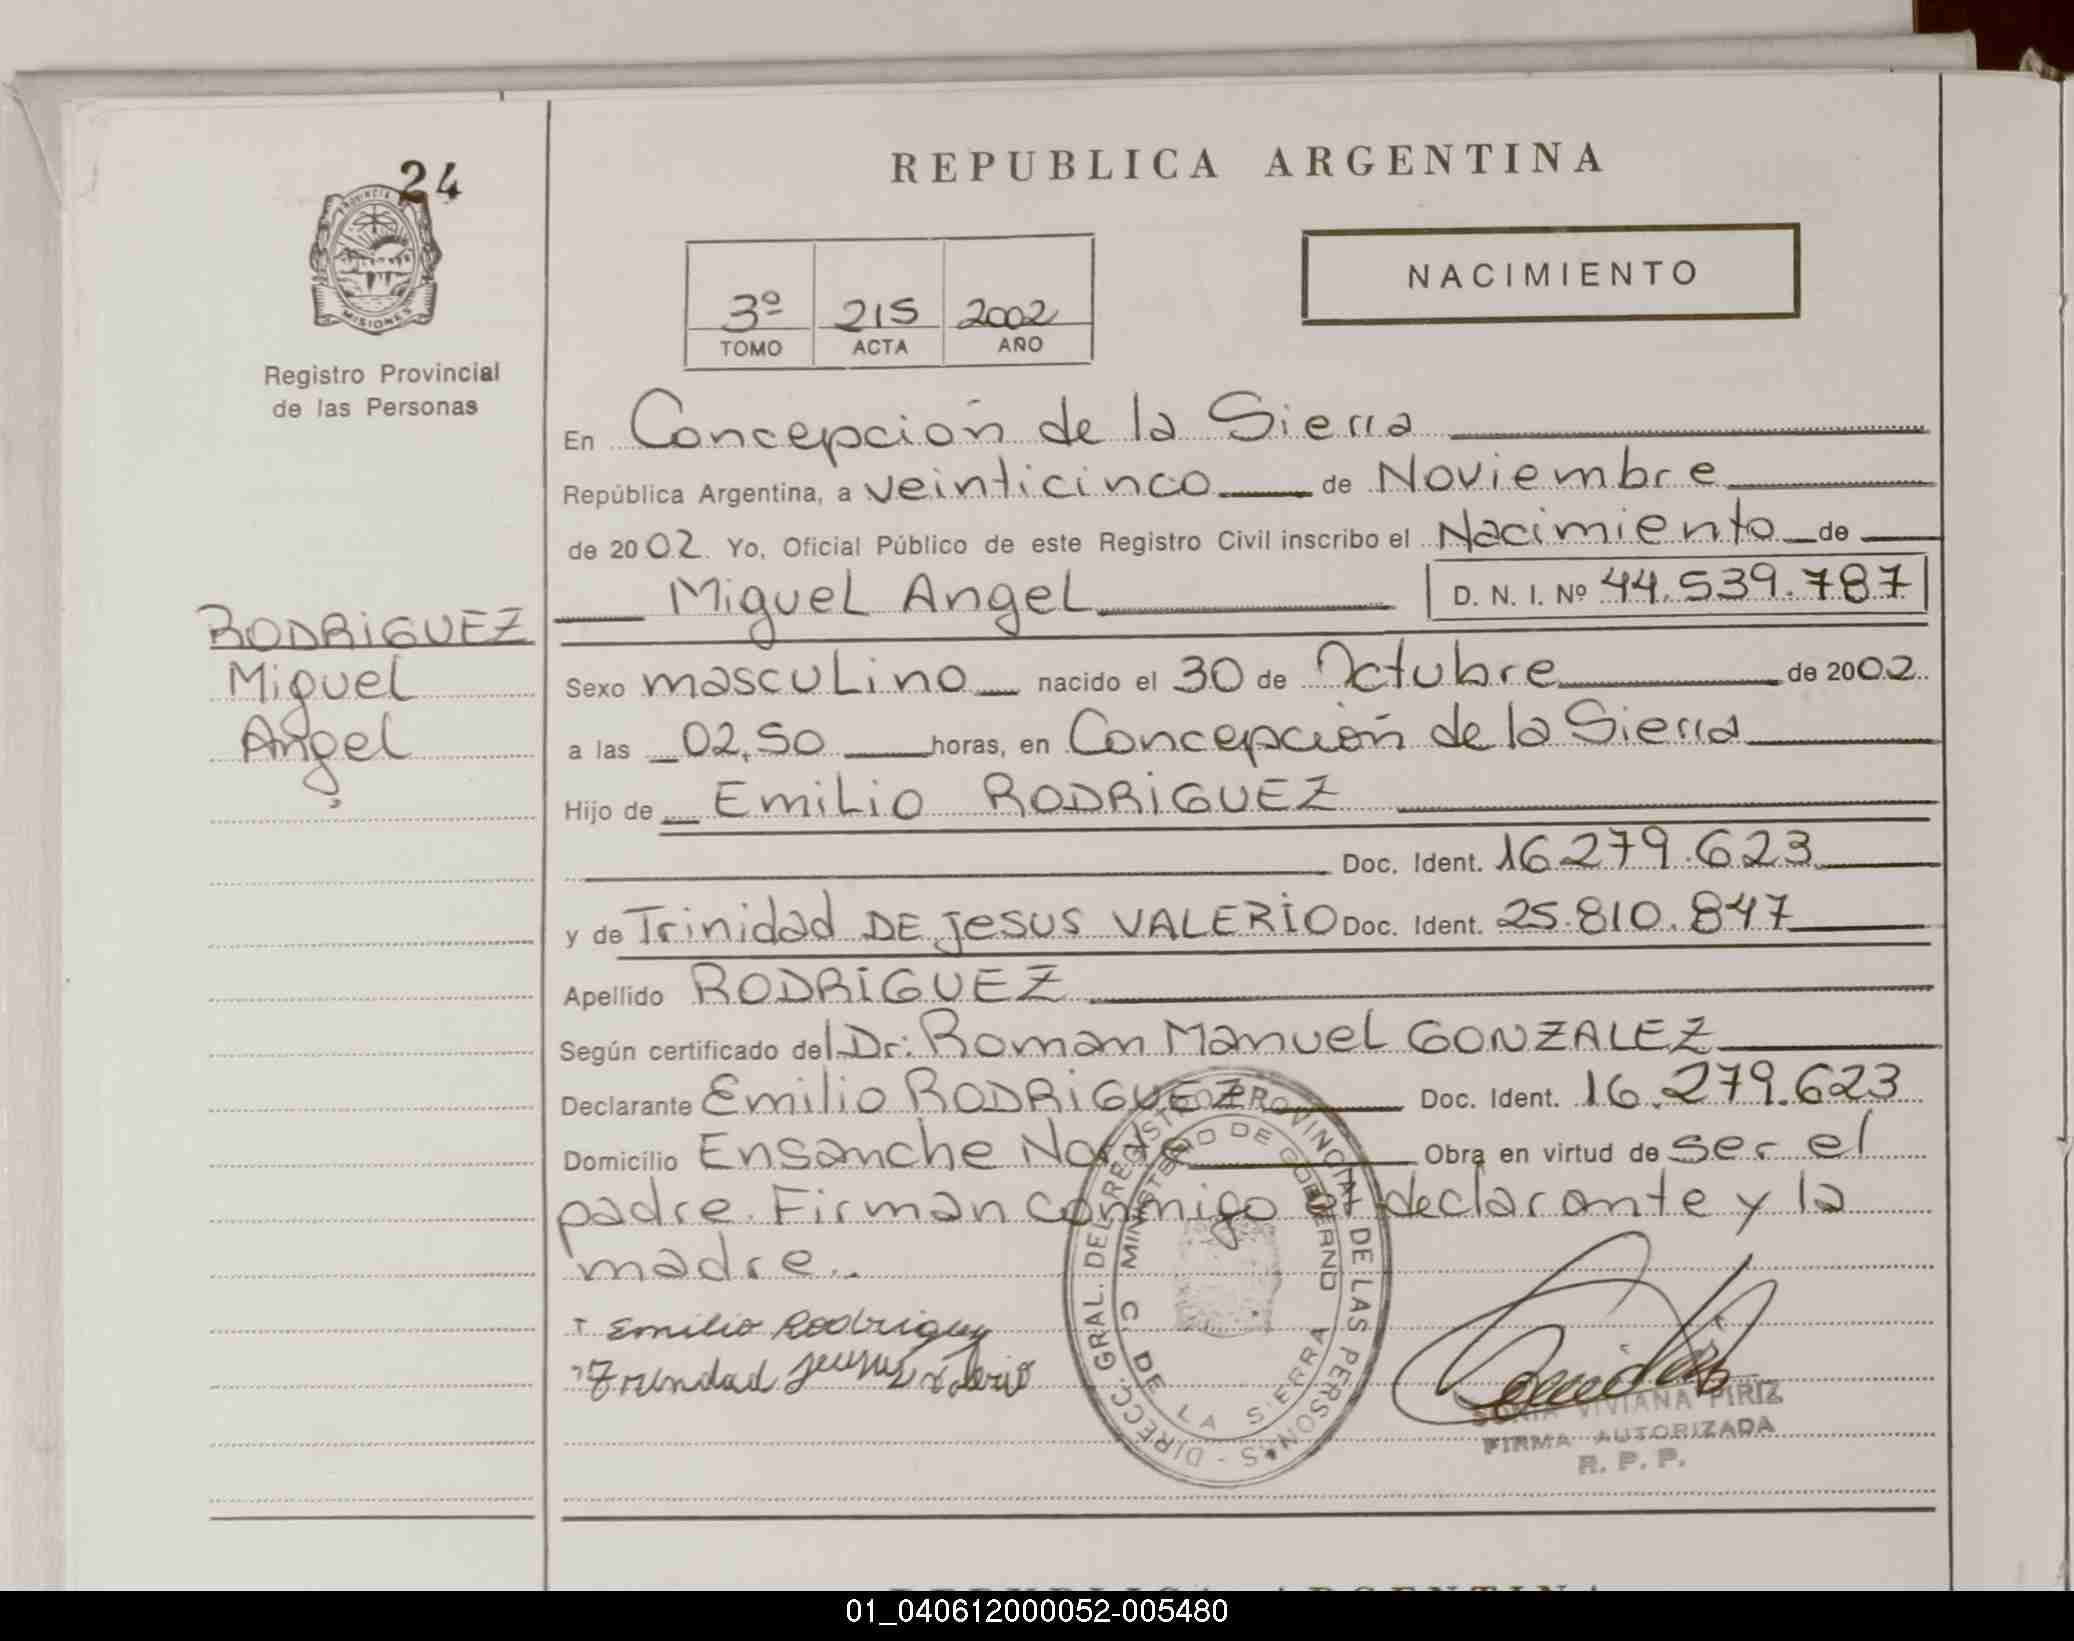 24
PROVINCIA
MISIONES
Registro Provincial
de las Personas
RODRIGUEZ
Miguel
Angel
REPUBLICA ARGENTINA
3º 215 2002
TOMO ACTA AÑO
NACIMIENTO
En Concepción de la Sierra
República Argentina, a veinticinco de Noviembre
de 2002. Yo, Oficial Público de este Registro Civil inscribo el Nacimiento de
Miguel Angel D. N. I. Nº 44.539.787
Sexo masculino nacido el 30 de Octubre de 2002.
a las 02,50 horas, en Concepción de la Sierra
Hijo de Emilio RODRIGUEZ
Doc. Ident. 16.279.623
y de Trinidad DE JESUS VALERIO Doc. Ident. 25.810.847
Apellido RODRIGUEZ
Según certificado del Dr: Roman Manuel GONZALEZ
Declarante Emilio RODRIGUEZ Doc. Ident. 16.279.623
Domicilio Ensanche Norte Obra en virtud de ser el
padre. Firman conmigo el declarante y la
madre..
Emilio Rodriguez
Trinidad Jesus Valerio
DIRECC. GRAL. DEL REGISTRO PROVINCIAL DE LAS PERSONAS -
MINISTERIO DE GOBIERNO
C. DE LA SIERRA
SONIA VIVIANA PIRIZ
FIRMA AUTORIZADA
R. P. P.
REPUBLICA ARGENTINA
01_040612000052-005480